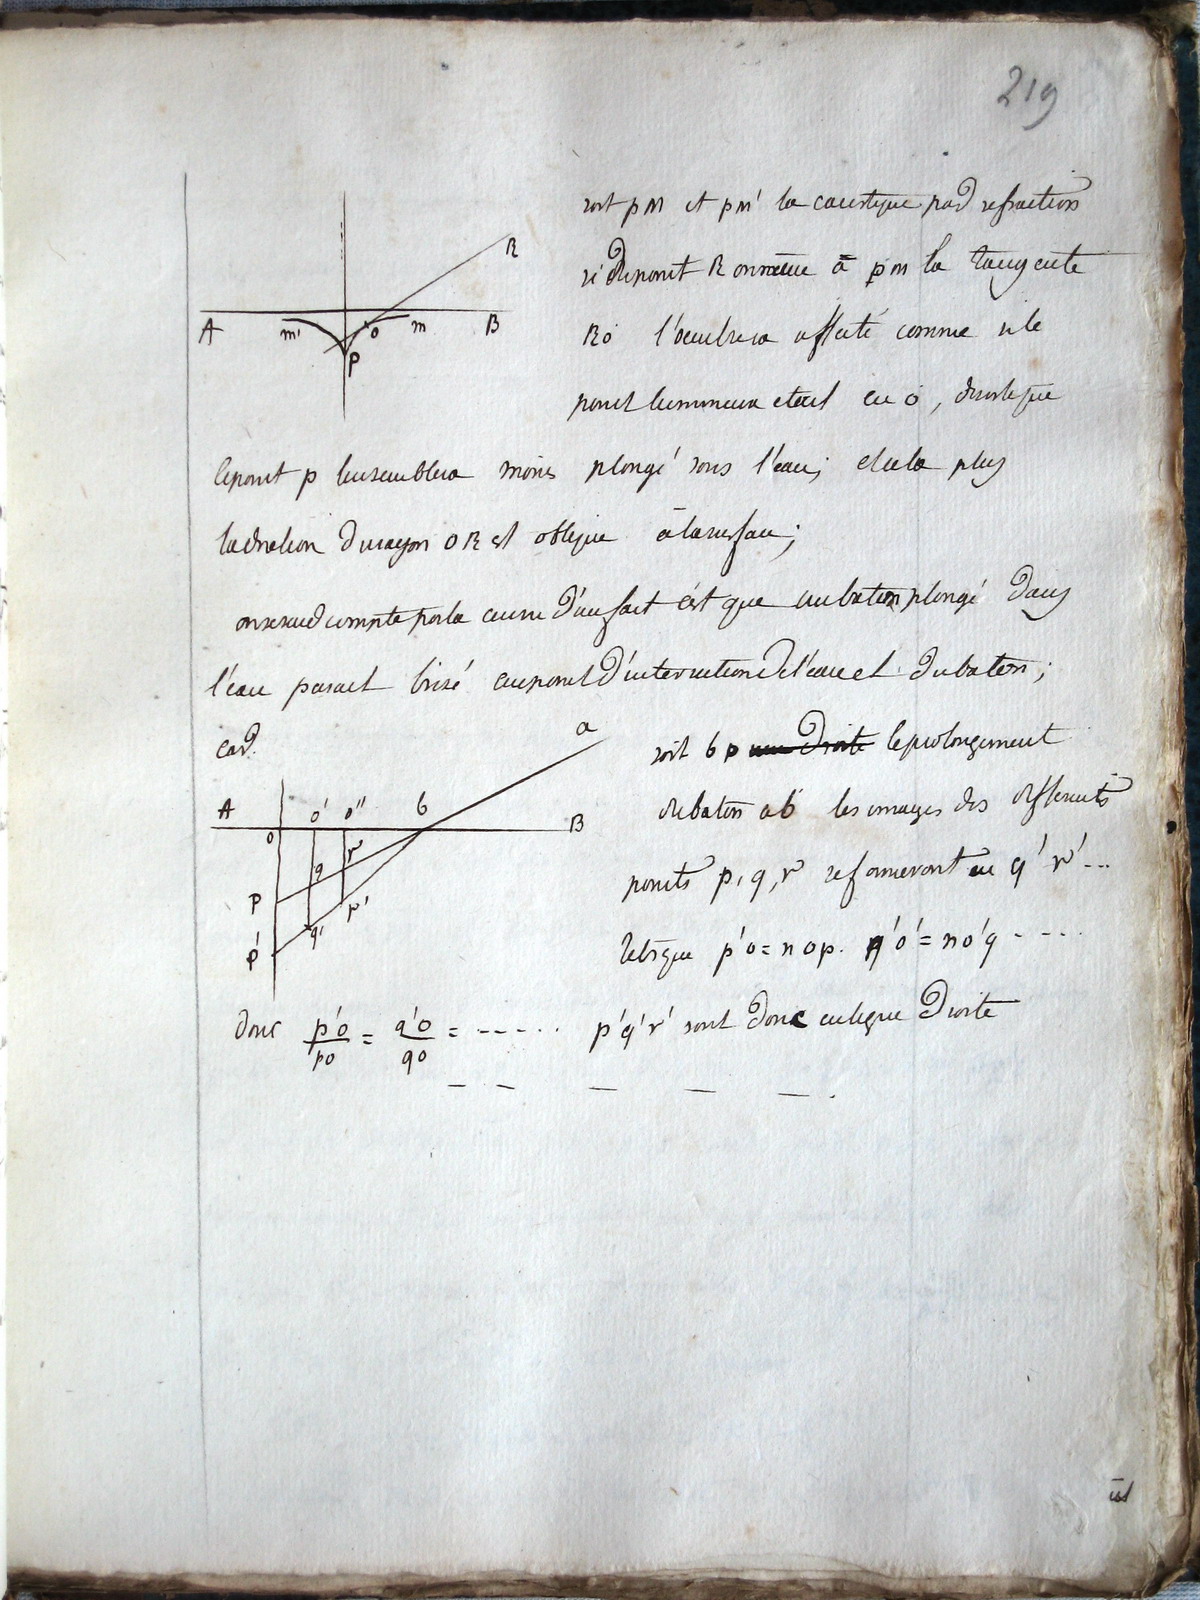 219
soit pm et pm' la caustique par refraction
R
si du point R on mene à pm la tangente
A m' o m B
p
Ro l'oeil sera affecté comme si le
point lumineux etait en o, desorteque
le point p lui semblera moins plongé sous l'eau; et cela plus
la direction du rayon OR est oblique à la surface;
on se rend compte par la cause d'un fait c'est que un baton plongé dans
l'eau parait brisé au point d'intersection de l'eau et du baton;
car
a
soit bp une droite le prolongement
A o' o'' b B
o
du baton ab les images des differents
q r
points p, q, r se formeront en q' r' ...
p r'
q'
p'
telsque p'o = n op. q'o' = n o'q - - - -
donc p'o/po = q'o/qo = - - - - - p'q'r' sont donc en ligne droite